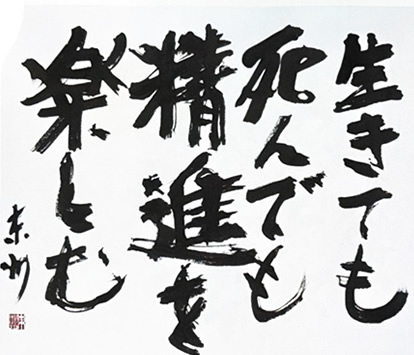 生きても
死んでも
精進を
楽しむ
東州